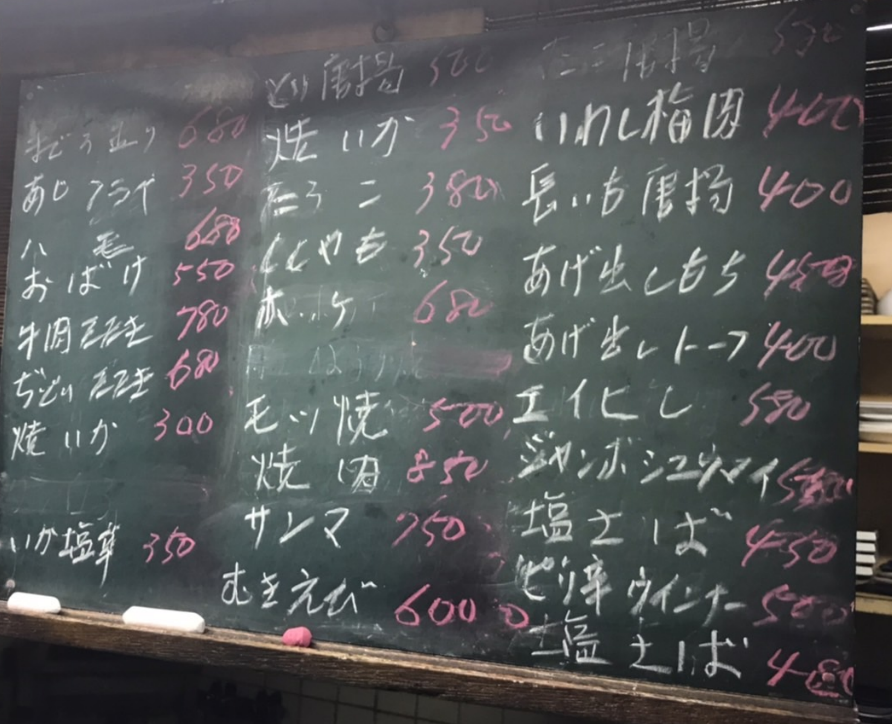 まぐろ造り 680
あじフライ 350
ハモ 680
おばけ 550
牛肉たたき 780
ぢどりたたき 680
焼いか 300
いか塩辛 350
とり唐揚 500
焼いか 350
たらこ 380
ししゃも 350
ホッケ 680
モツ焼 500
焼肉 850
サンマ 750
むきえび 600
たこ唐揚 550
いわし梅肉 400
長いも唐揚 400
あげ出しもち 450
あげ出しトーフ 400
エイヒレ 580
ジャンボシュウマイ
塩さば 450
ピリ辛ウインナー 500
塩さば 480